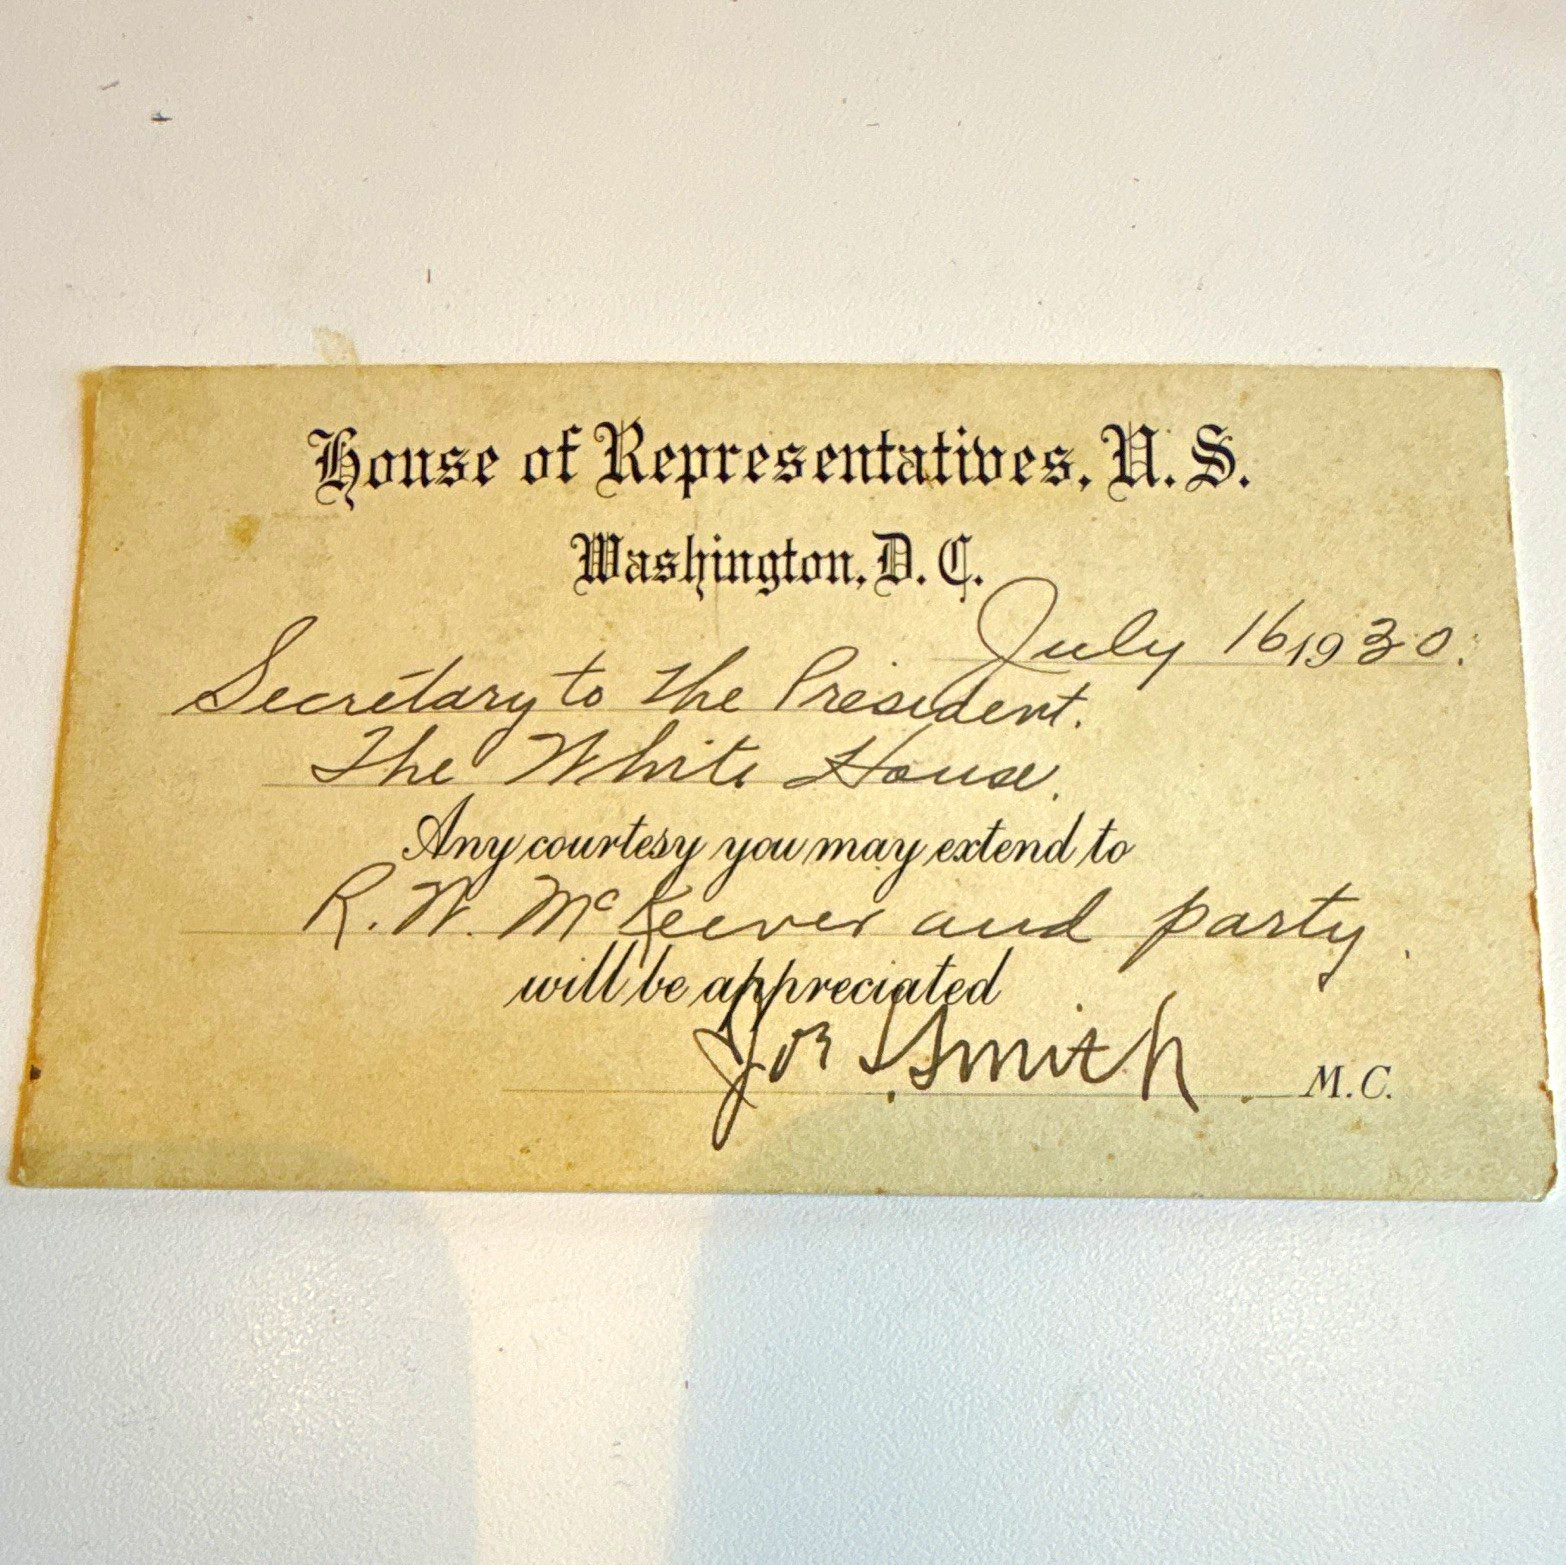 House of Representatives, U. S.
Washington, D. C.
July 16, 1930.
Secretary to the President.
The White House.
Any courtesy you may extend to
R. W. McKeever and party.
will be appreciated
Joe Smith M.C.